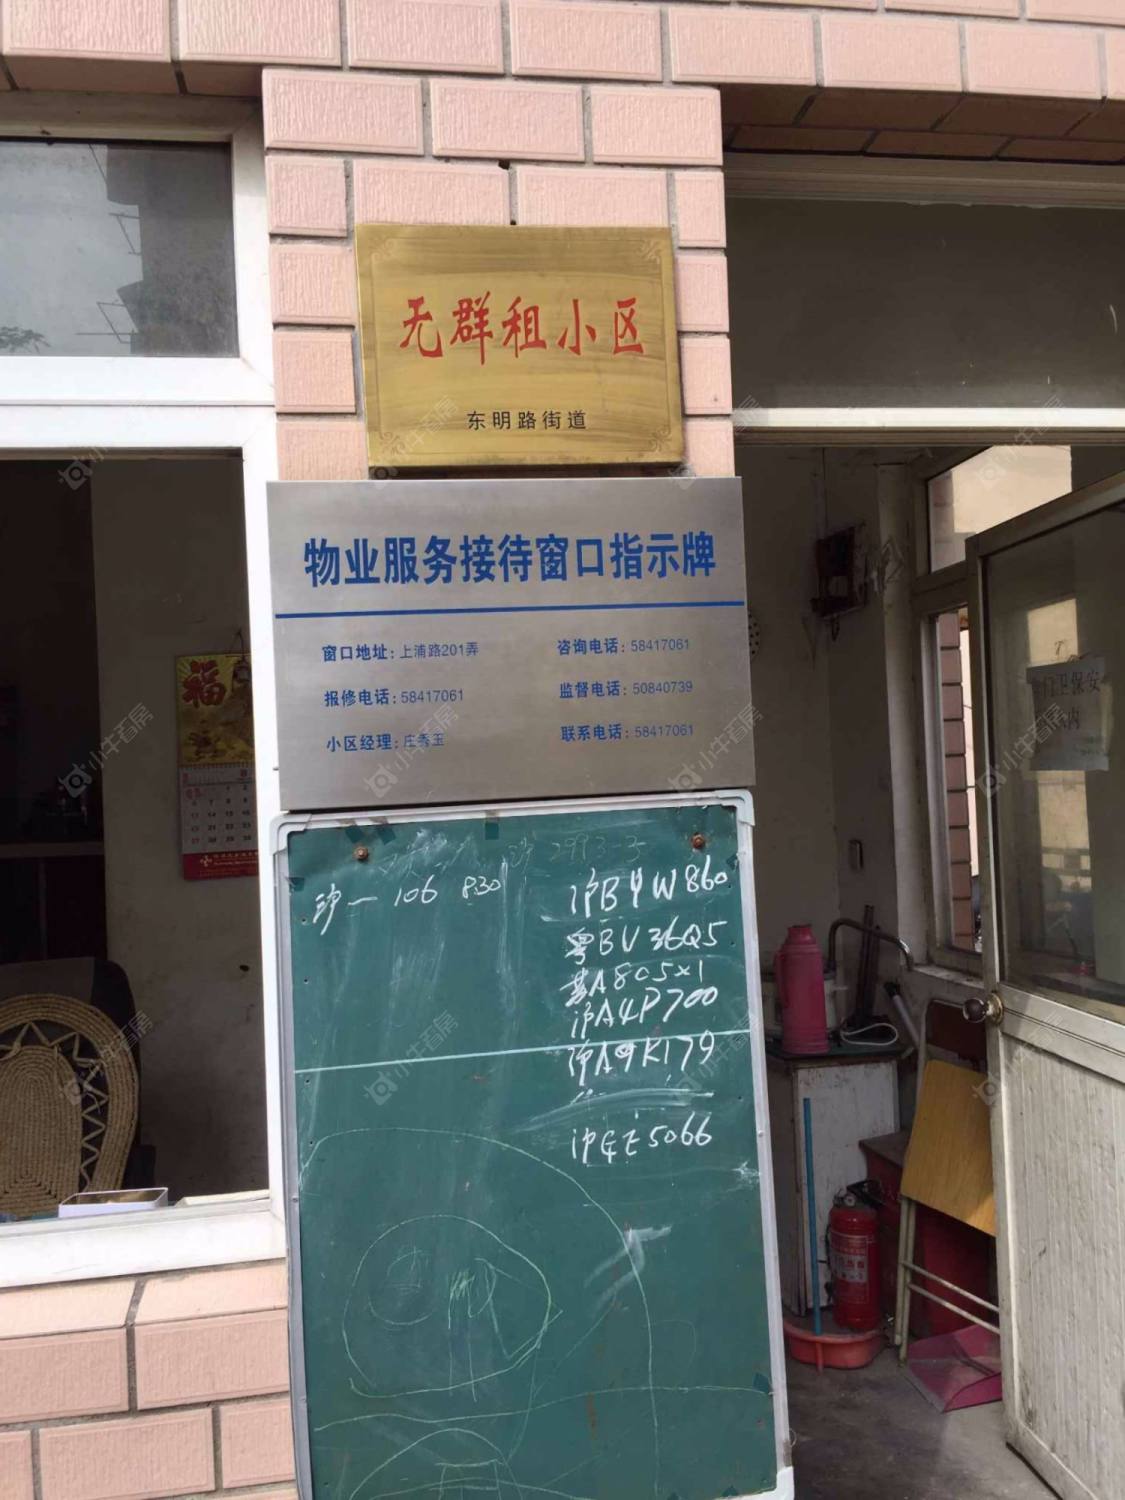 无群租小区
东明路街道
物业服务接待窗口指示牌
窗口地址：上浦路201弄
咨询电话：58417061
报修电话：58417061
监督电话：50840739
小区经理：庄秀玉
联系电话：58417061
106 830
沪B W860
粤BV36Q5
A805X1
沪A4P700
沪A9K179
5066
福
门卫保安
内
小牛看房